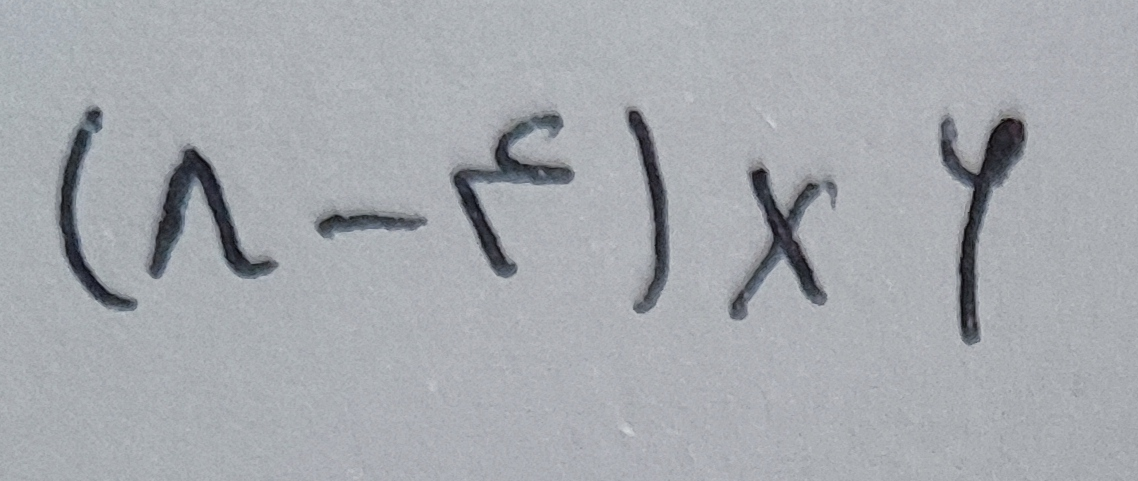 (۸-۴)×۶